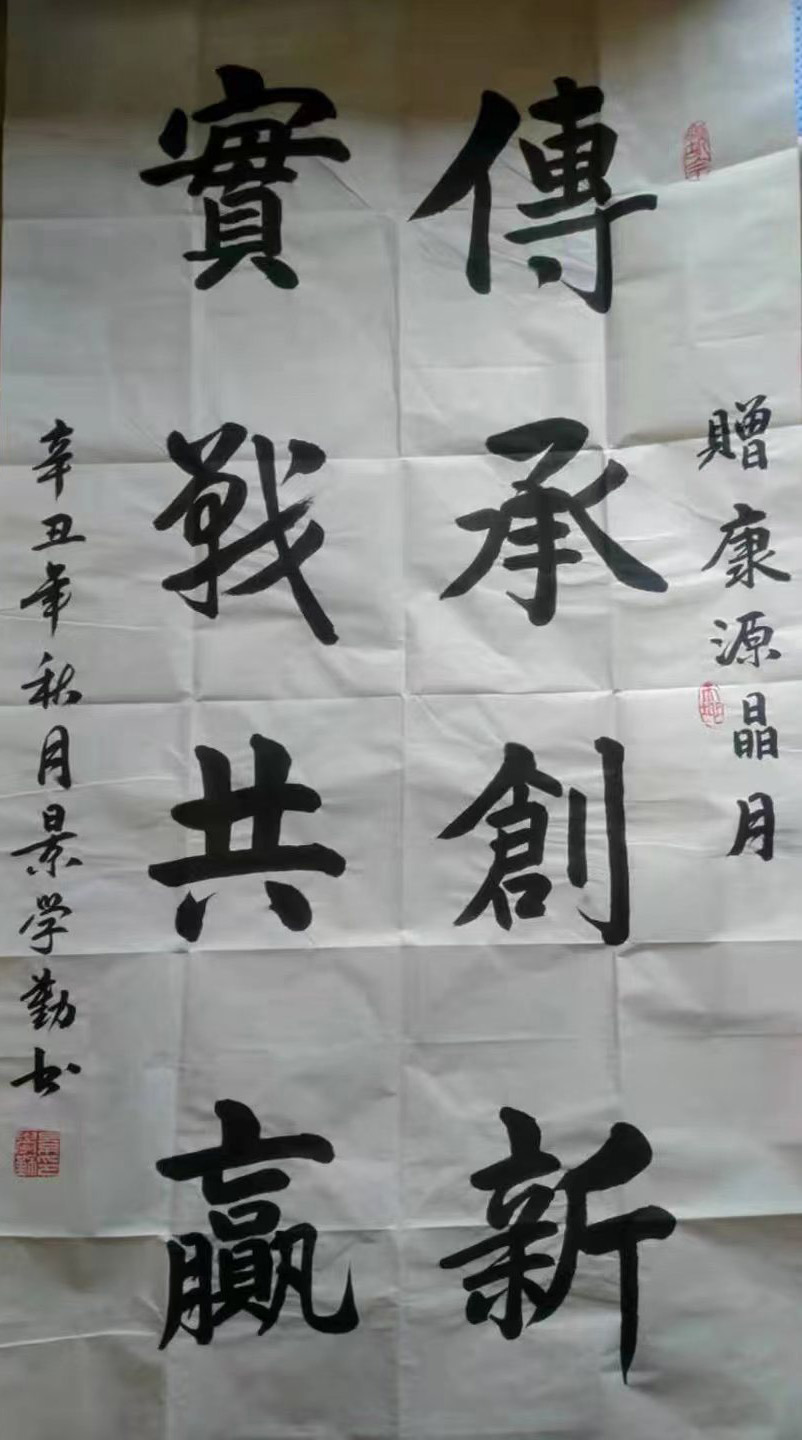 贈康源晶月
傳承創新
實戰共贏
辛丑年秋月景学勤书